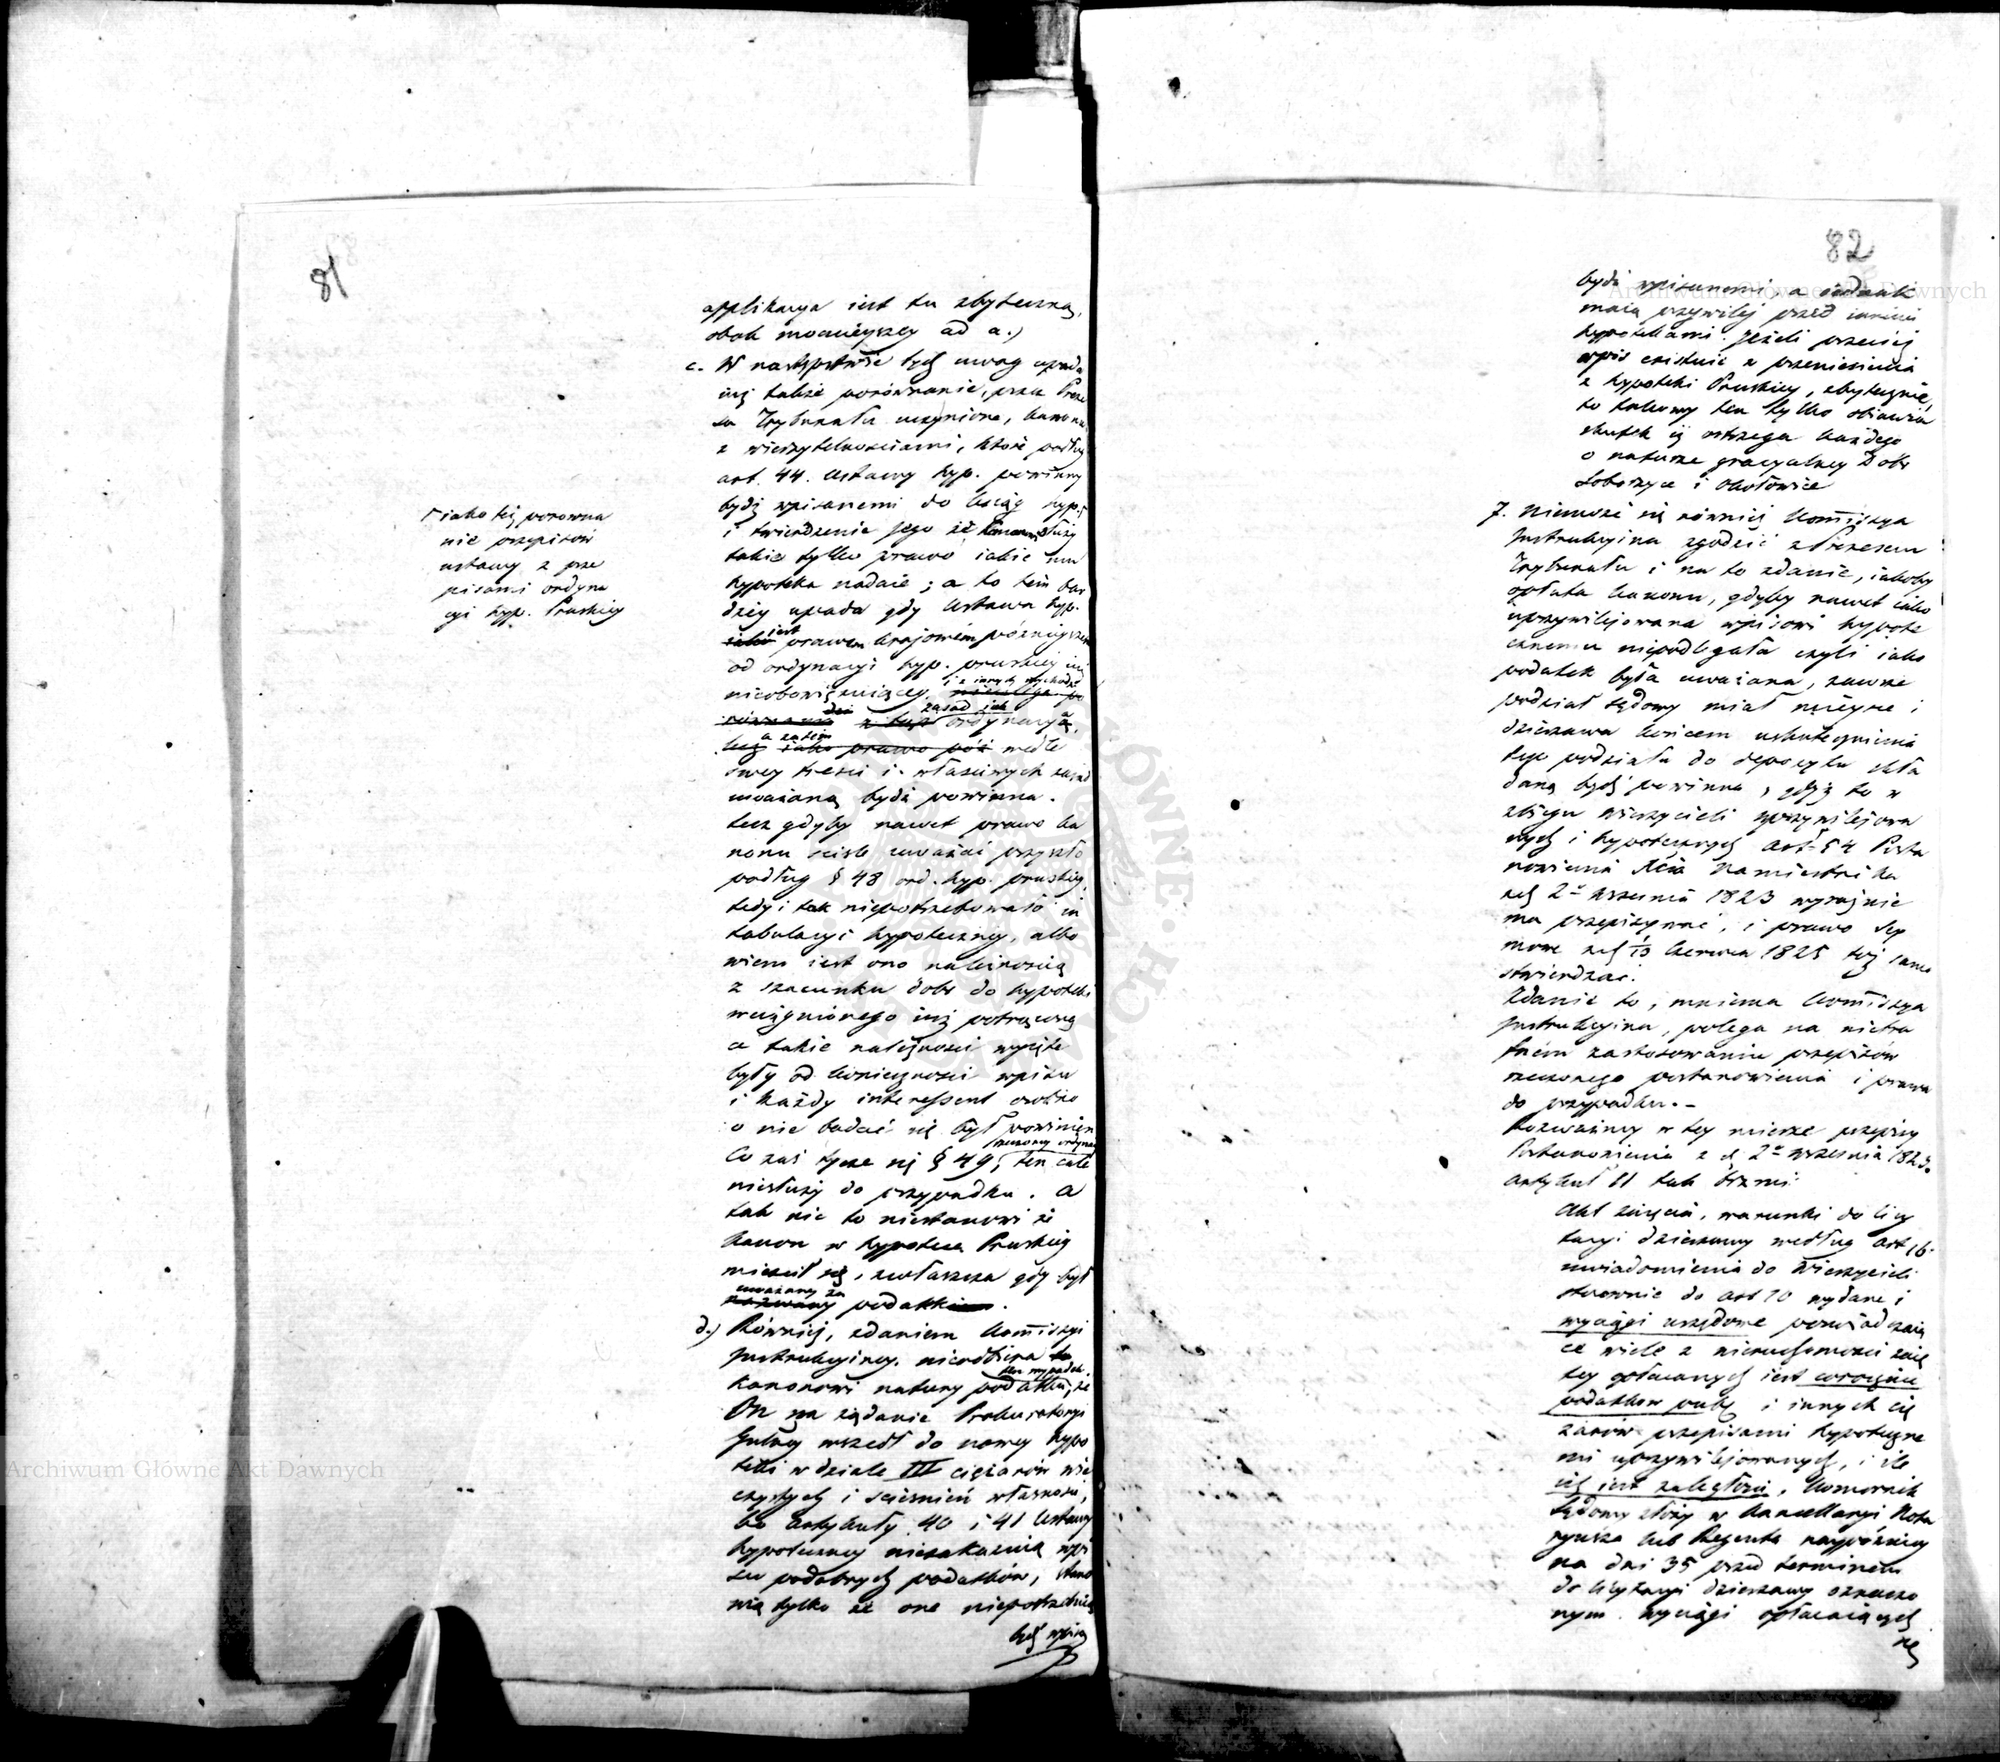 81
applikacya iest tu zbyteczną,
obok mocnieyszey ad a.)
c. W następstwie tych uwag upada
iuż także porównanie, przez Preze
sa Trybunału uczynione, kanonu
z wierzytelnościami, które podług
art. 44. Ustawy hyp. powinny
bydź wpisanemi do ksiąg hyp.
i twierdzenie jego że kanonowi służy
takie tylko prawo iakie mu
hypoteka nadaie; a to tém bar
dziey upada gdy Ustawa hyp.
iako iest prawem kraiowém późnieyszem
od ordynacyi hyp. pruskiey iuż
nieobowiązuiącey i z innych wychodzi
dzi zasad iak ordynacya,
a zatém iako prawo wedle
swey treści i właściwych zasad
uważaną bydź powinna.
Lecz gdyby nawet prawo ka
nonu ściśle uważać przyszło
podług § 48 ord. hyp. pruskiey,
tedy i tak niepotrzebowało in
tabulacyi hypoteczney, albo
wiem iest ono należnością
z szacunku dóbr do hypoteki
wciągnionego iuż potrąconą
a takie należności wyięte
były od konieczności wpisu
i każdy interessent osobno
o nie badać się był powinien
Co zaś tycze się § 49, rzeczoney ordynacyi ten cale
niesłuży do przypadku. a
tak nic to niestanowi że
kanon w hypotece Pruskiey
mieścił się, zwłaszcza gdy był
uważany za
nazwany podatkiem.
d.) Również, zdaniem Kommissyi
Instrukcyiney, nieodbiera to
kanonowi natury podatku, ten wypadek, że
On na żądanie Prokuratoryi
Gulney wszedł do nowey hypo
teki w dziale III ciężarów wie
czystych i ścieśnień własności,
bo artykuły 40 i 41 Ustawy
hypoteczney niezakazuią wpi
su podobnych podatków, stano
wią tylko że one niepotrzebuią
bydź wpisa
Γ iako też porowna
nie przepisów
ustawy z prze
pisami ordyna
cyi hyp. Pruskiey
82
bydź wpisanemi, a iednak
maią przywiley przed innemi
hypotekami. Jeżeli przeciéż
wpis existuie z przeniesienia
z hypoteki Pruskiey, zbytecznie,
to takowy ten tylko obiawia
skutek iż ostrzega każdego
o naturze gracyalney Dóbr
Soboszyce i Okołowice
7. Niemoże się również Kommissya
Instrukcyina zgodzić z Prezesem
Trybunału i na to zdanie, iakoby
opłata kanonu, gdyby nawet iako
uprzywilejowana wpisowi hypote
cznemu niepodlegała czyli iako
podatek była uważana, zawsze
podział sądowy miał mieysce i
dzierżawa końcem uskutecznienia
tego podziału do depozytu skła
daną bydź powinna, gdyż to w
zbiegu wierzycieli uprzywilejowa
nych i hypotecznych art. 54 Posta
nowienia Xcia Namiestnika
z d. 2o Września 1823 wyraźnie
ma przepisywać, i prawo Sey
mowe z d. 1/13 Czerwca 1825 też samo
stwierdzać.
Zdanie to, mniema Kommissya
Instrukcyina, polega na nietra
fném zastosowaniu przepisów
rzeczonego postanowienia i prawa
do przypadku.-
Rozważmy w tey mierze przepisy
Postanowienia z d. 2o Września 1823.
artykuł 11 tak brzmi:
Akt zaięcia, warunki do licy
tacyi dzierżawy według art. 16.
uwiadomienia do Wierzycieli
stosownie do art 10 wydane i
wyciągi urzędowe poświadczaią
ce wiele z nieruchomości zaię
tey opłacanych iest corocznie
podatków publ. i innych cię
żarów przepisami hypoteczne
mi uprzywilejowanych, i ile
ich iest zaległém, Komornik
Sądowy złoży w Kancellaryi Nota
ryusza lub Regenta naypóźniey
na dni 35 przed terminem
do licytacyi dzierżawy oznaczo
nym. Wyciągi opłacaiących
się
Archiwum Główne Akt Dawnych
Archiwum Główne Akt Dawnych